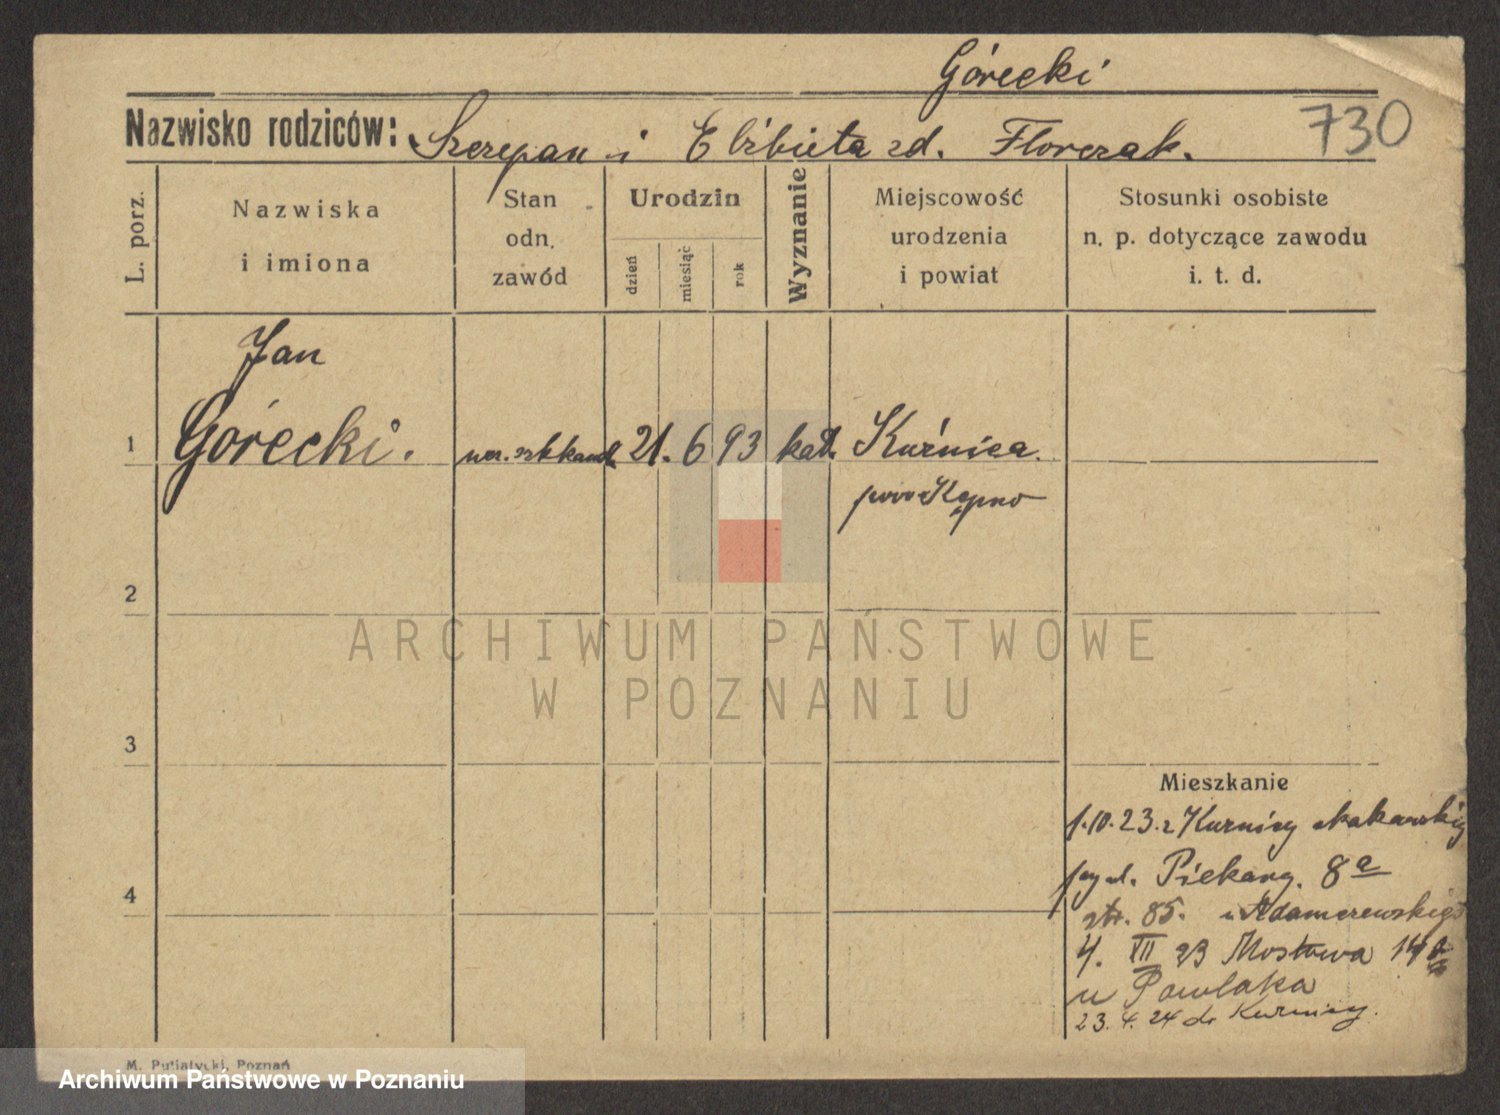 Górecki
Nazwisko rodziców: Szczepan i Elżbieta zd. Florczak.
730
L. porz.
Nazwiska
i imiona
Stan
odn.
zawód
Urodzin
dzień
miesiąc
rok
Wyznanie
Miejscowość
urodzenia
i powiat
Stosunki osobiste
n. p. dotyczące zawodu
i. t. d.
Jan
1 Górecki. 21. 6 93 kat. Kuźnica.
pow Kępno
2
ARCHIWUM PAŃSTWOWE
W POZNANIU
3
Mieszkanie
1.10.23. z Kuźnicy
Piekary. 8a
4
str. 85. u Adamczewskiego
4. XII 23 Mostowa 14
u Pawlaka
23. 4. 24 do Kuźnicy.
M. Putiatycki, Poznań
Archiwum Państwowe w Poznaniu